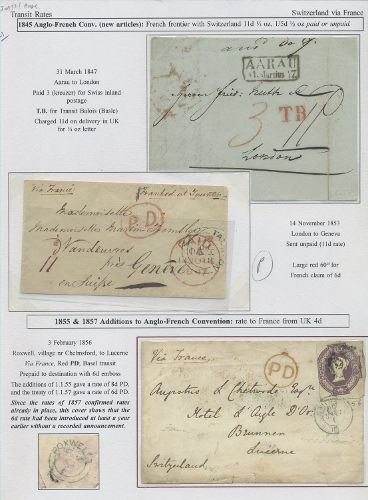 Transit Rates
Switzerland via France
1845 Anglo-French Conv. (new articles): French frontier with Switzerland 11d ¼ oz, 1/5d ½ oz paid or unpaid
31 March 1847
Aarau to London
Paid 3 (kreuzer) for Swiss inland
postage
T.B. for Transit Balois (Basle)
Charged 11d on delivery in UK
for ¼ oz letter
AARAU
3
TB
London
Via France
PD
Mademoiselle
Mademoiselle
Vandeuvres
près Genève
en Suisse
PAID
14 November 1853
London to Geneva
Sent unpaid (11d rate)
Large red 60° for
French claim of 6d
1855 & 1857 Additions to Anglo-French Convention: rate to France from UK 4d
3 February 1856
Roxwell, village nr Chelmsford, to Lucerne
Via France, Red PD; Basel transit
Prepaid to destination with 6d emboss
The additions of 1.1.55 gave a rate of 8d PD,
and the treaty of 1.1.57 gave a rate of 6d PD.
Since the rates of 1857 confirmed rates
already in place, this cover shows that the
6d rate had been introduced at least a year
earlier without a recorded announcement.
ROXWELL
Via France
PD
Augustus L Chetwode Esqr
Hotel d'Aigle D'Or
Brunnen
Lucerne
Switzerland